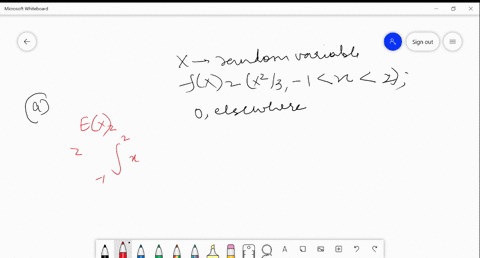 Microsoft Whiteboard
Sign out
X → random variable
f(x) = (x²/3, -1 < x < 2);
0, elsewhere
(a)
E(x) =
= ∫₋₁² x